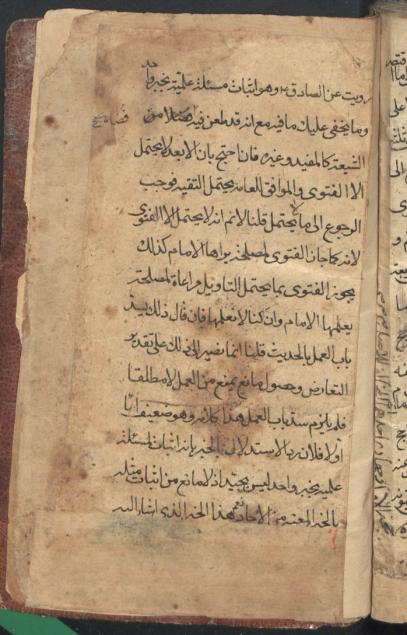 رويت عن الصادق ع وهو اثبات مسئلة علمية بخبر واحد
وما يخفى عليك ما فيه مع انه قد طعن فيه فضلاء من
الشيعة كالمفيد وغيره فان احتج بان الابعد لا يحتمل
الا الفتوى والموافق للعامة يحتمل التقية فوجب
الرجوع الى ما لا يحتمل قلنا لا نم انه لا يحتمل الا الفتوى
لانه كما جاز الفتوى لمصلحة يراها الامام كذلك
يجوز الفتوى بما يحتمل التاويل مراعاة لمصلحة
يعلمها الامام وان كنا لا نعلمها فان قال ذلك يسد
باب العمل بالحديث قلنا انما نصير الى ذلك على تقدير
التعارض وحصول مانع يمنع من العمل لا مطلقا
فلم يلزم سد باب العمل هذا كلامه وهو ضعيف اما
اولا فلان رد الاستدلال بالخبر بانه اثبات لمسئلة
علمية بخبر واحد ليس بجيد اذ لا مانع من اثبات مثله
بالخبر المعتبر من الاحاد نعم هذا الخبر الذي اشار اليه